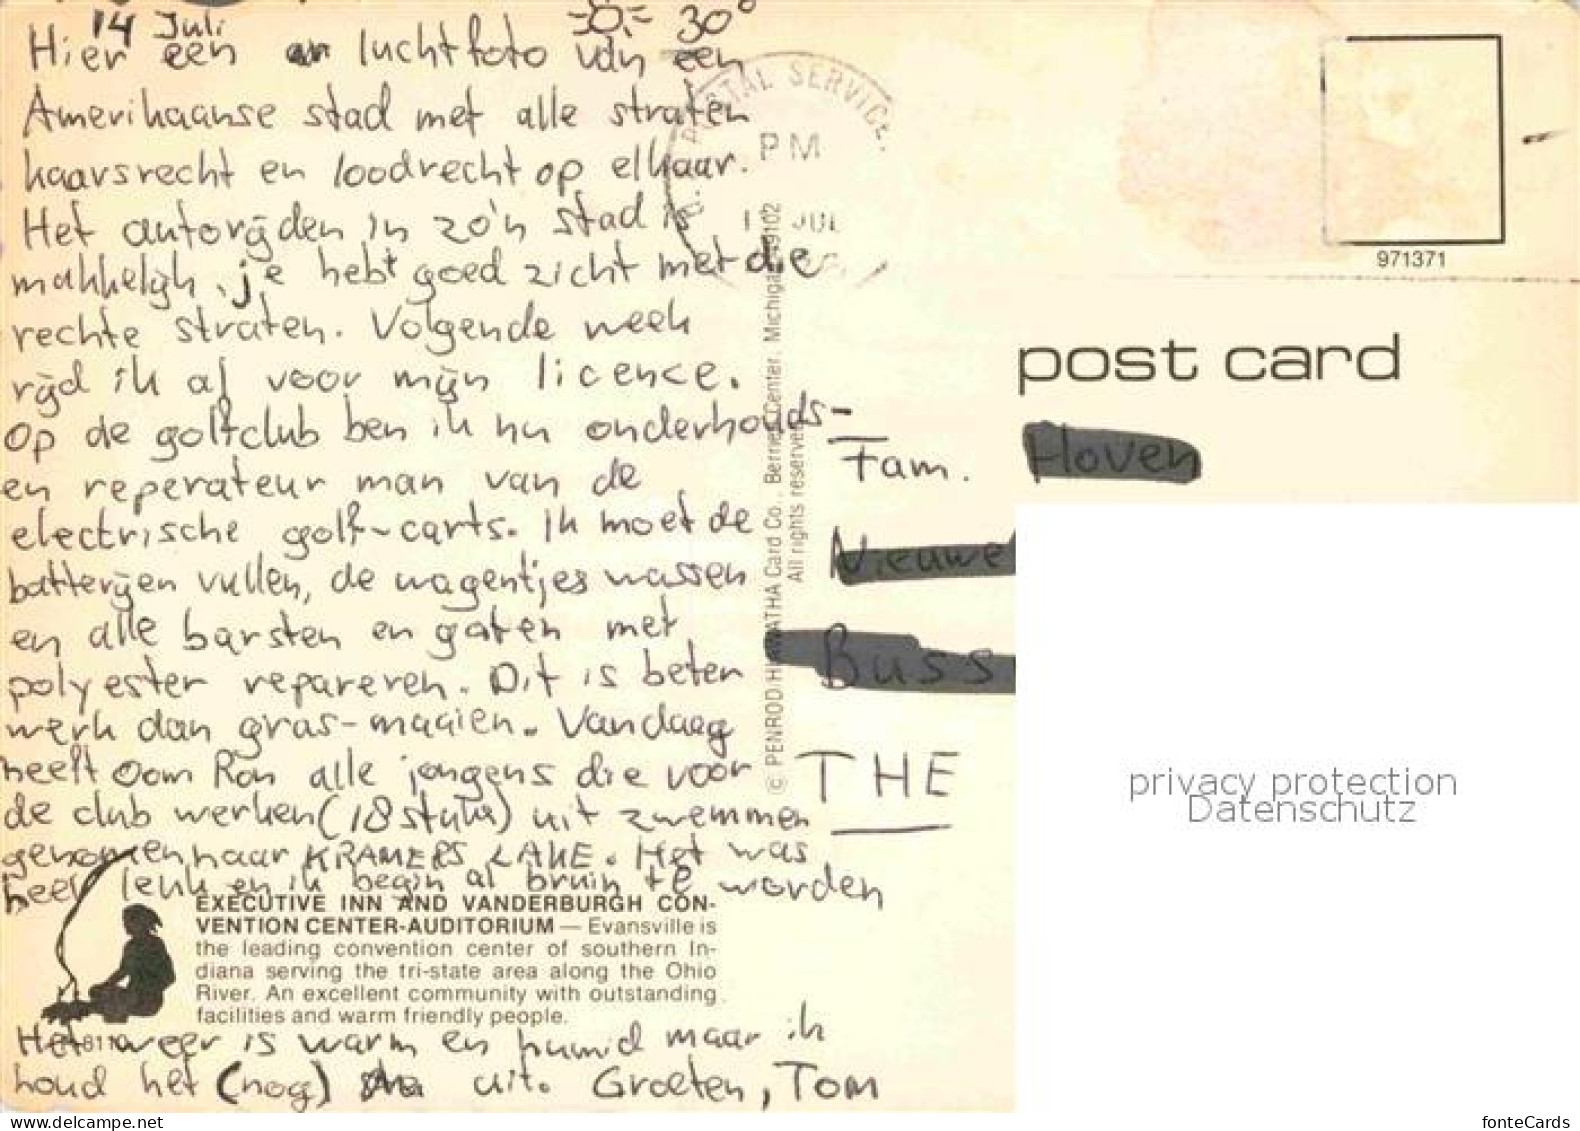 14 Juli 30°
Hier een luchtfoto van een
Amerikaanse stad met alle straten
haarsrecht en loodrecht op elkaar.
Het autorijden in zo'n stad is
makkelijk, je hebt goed zicht met die
rechte straten. Volgende week
rijd ik af voor mijn licence.
Op de golfclub ben ik nu onderhouds-
en reperateur man van de
electrische golf-carts. Ik moet de
batterijen vullen, de wagentjes wassen
en alle barsten en gaten met
polyester repareren. Dit is beter
werk dan gras-maaien. Vandaag
heeft Oom Ron alle jongens die voor
de club werken (18 stuks) uit zwemmen
genomen naar KRAMERS LAKE. Het was
heel leuk en ik begin al bruin te worden
EXECUTIVE INN AND VANDERBURGH CON-
VENTION CENTER-AUDITORIUM — Evansville is
the leading convention center of southern In-
diana serving the tri-state area along the Ohio
River. An excellent community with outstanding
facilities and warm friendly people.
Het weer is warm en humid maar ik
houd het (nog) uit. Groeten, Tom
POSTAL SERVICE
PM
JUL
© PENROD/HIAWATHA Card Co., Berrien Center, Michigan 49102
All rights reserved
971371
post card
Fam. Hoven
Nieuwe
Buss
THE
privacy protection
Datenschutz
www.delcampe.net
fonteCards